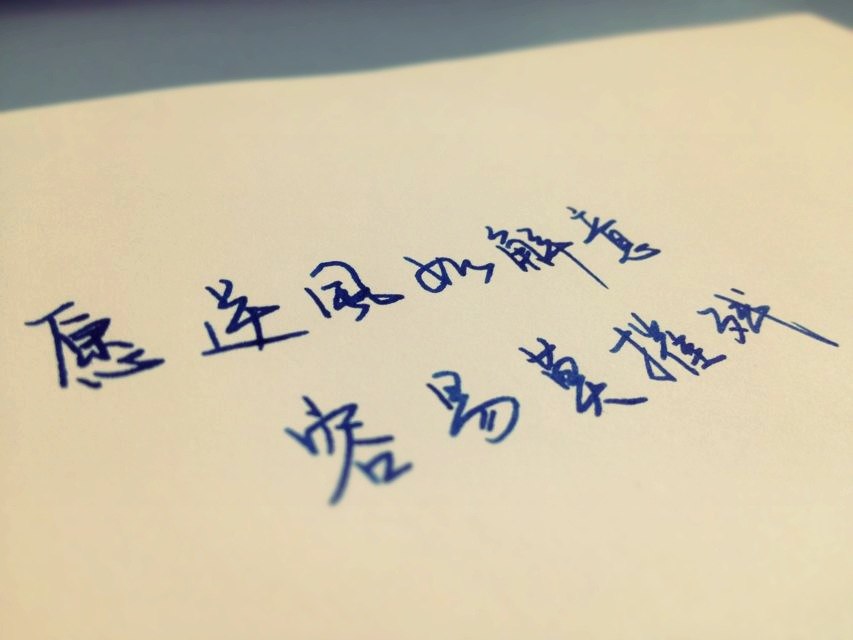 愿逆风如解意
容易莫摧残